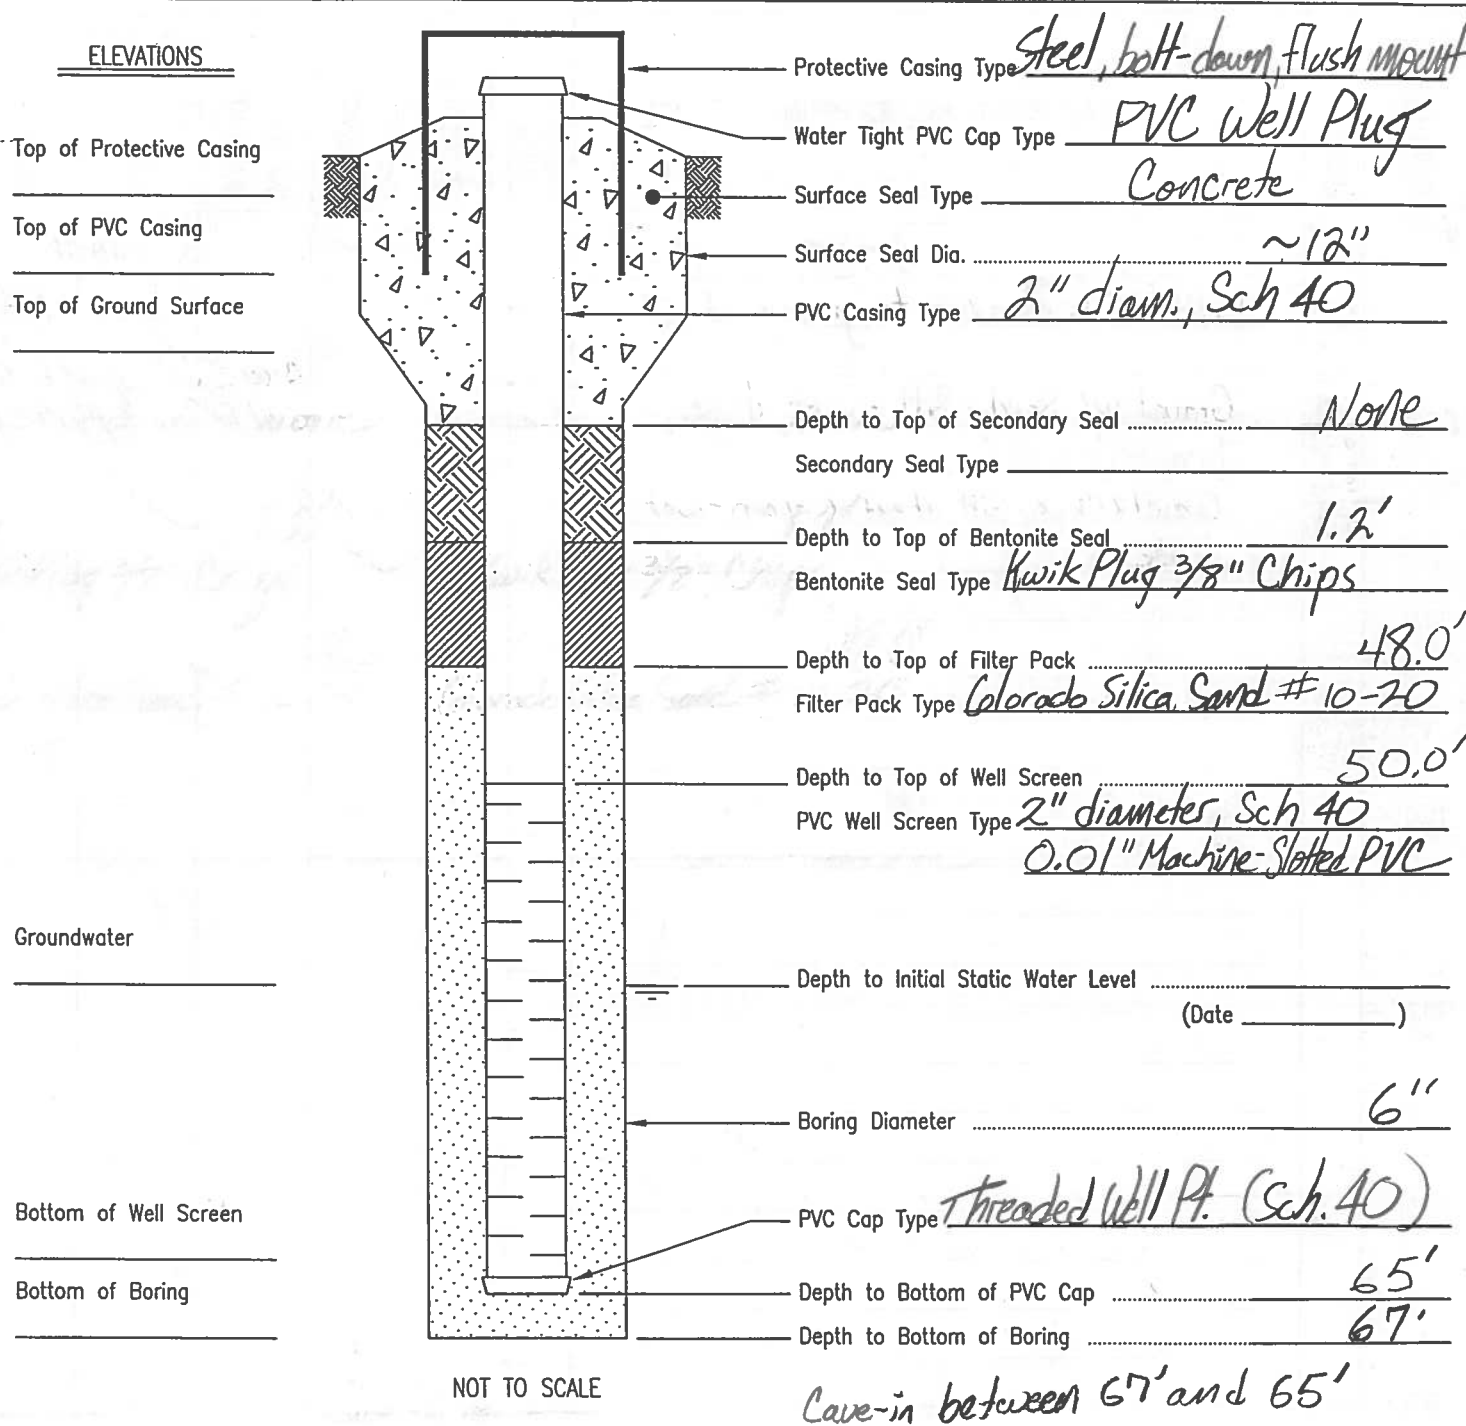 ELEVATIONS
Top of Protective Casing
Top of PVC Casing
Top of Ground Surface
Groundwater
Bottom of Well Screen
Bottom of Boring
Protective Casing Type Steel, bolt-down, flush mount
Water Tight PVC Cap Type PVC Well Plug
Surface Seal Type Concrete
Surface Seal Dia. ~12"
PVC Casing Type 2" diam., Sch 40
Depth to Top of Secondary Seal None
Secondary Seal Type
Depth to Top of Bentonite Seal 1.2'
Bentonite Seal Type Kwik Plug 3/8" Chips
Depth to Top of Filter Pack 48.0'
Filter Pack Type Colorado Silica Sand # 10-20
Depth to Top of Well Screen 50.0'
PVC Well Screen Type 2" diameter, Sch 40
0.01" Machine-Slotted PVC
Depth to Initial Static Water Level
(Date )
Boring Diameter 6"
PVC Cap Type Threaded Well Pt. (Sch. 40)
Depth to Bottom of PVC Cap 65'
Depth to Bottom of Boring 67'
NOT TO SCALE
Cave-in between 67' and 65'